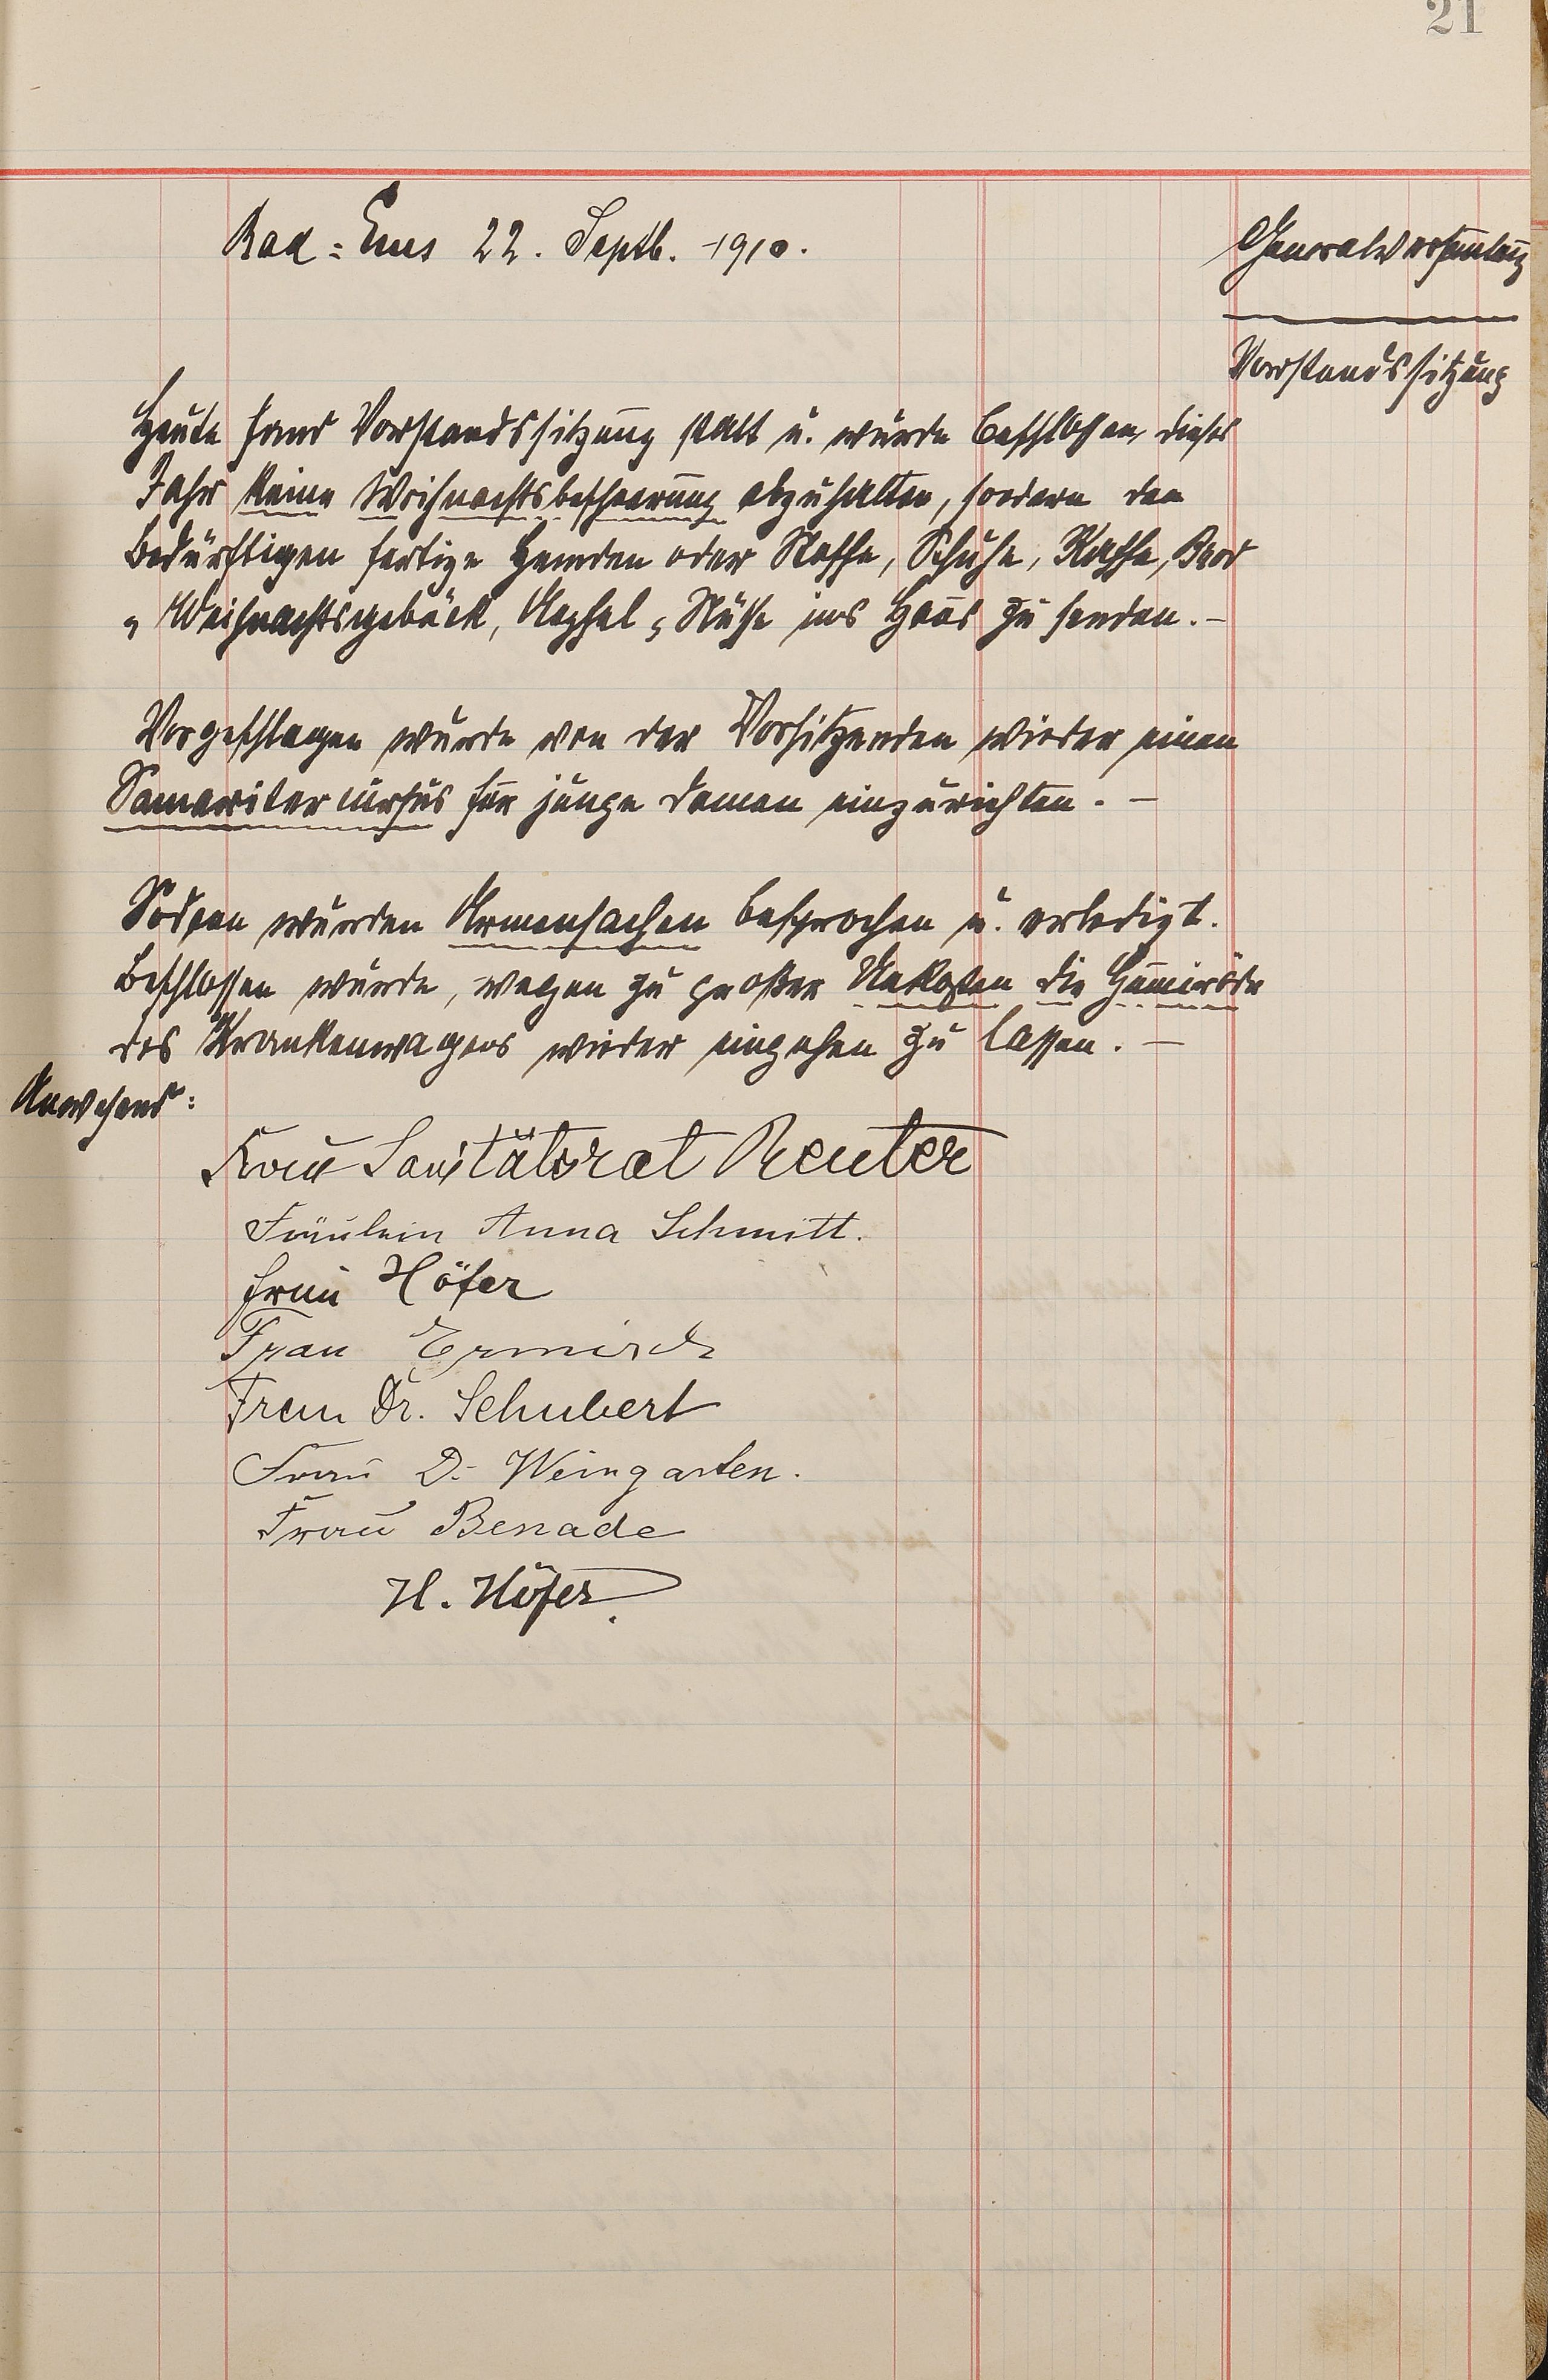 21
Bad=Ems 22. Septb. 1910.
Generalversamlung
Vorstandssitzung
Heute fand Vorstandssitzung statt u. wurde beschlossen, dieses
Jahr keine Weihnachtsbescheerung abzuhalten, sondern den
Bedürftigen fertige Hemden oder Stoffe, Schuhe, Kaffe, Brod
u Weihnachtsgebäck, Aepfel u Nüsse ins Haus zu senden. –
Vorgeschlagen wurde von der Vorsitzenden wieder einen
Samaritercursus für junge Damen einzurichten. –
Sodann wurden Armensachen besprochen u. erledigt.
Beschlossen wurde, wegen zu großer Unkosten die
des Krankenwagens wieder eingehen zu lassen. –
Anwesend:
Frau Sanitätsrat Reuter
Fräulein Anna Schmitt.
Frau Höfer
Frau Ermisch
Frau Dr. Schubert
Frau Dr Weingarten.
Frau Benade
H. Höfer.